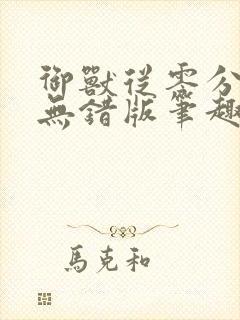 御獸從零分
無錯版筆趣
馬克和